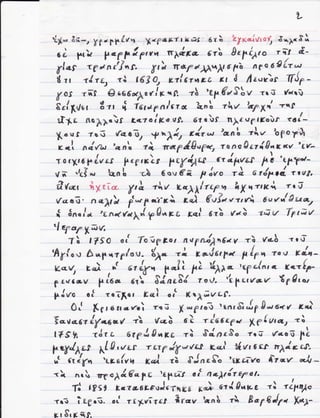 2
σὲ μιὰ μαρμάρινη πλάκα στὸ θεμέλιο τῆς
ὅτι τότε, τὸ 1630, κτίστηκε κι ὁ Λευκὸς Πύρ-
γος τῆς Θεσσαλονίκης. τὸ ἐμβαδὸν τοῦ ναοῦ
δείχνει ὅτι ἡ Τσαριτσάνη ἀπὸ τὴν ἀρχὴ της
εἶχε πολλοὺς κατοίκους. στοὺς πλευρικοὺς τοί-
χους τοῦ ναοῦ, ψηλά, κάτω ἀπὸ τὴν ὀροφὴ
καὶ πάνω ἀπὸ τὰ παράθυρα, τοποθετήθηκαν ἐν-
τοιχισμένες μερικὲς μεγάλες στάμνες μὲ
εἶναι ἠχεῖα γιὰ τὴν καλλίτερη ἠχητικὴ τοῦ
ναοῦ· παλιὰ ρωμαϊκὴ καὶ βυζαντινὴ συνήθεια,
ἡ ὁποία ἐπαναλήφθηκε καὶ στὸ ναὸ τῶν Τριῶν
Ἱεραρχῶν.
Τὸ 1750 οἱ Τοῦρκοι πυρπόλησαν τὸ ναὸ τοῦ
Ἁγίου Δημητρίου. ὅλα τὰ καύσιμα μέρη του κάη-
καν, καὶ ἡ στέγη μαζὶ μὲ ἄλλα ἐρείπια κατέρ-
ρευσαν μέσα στὸ δάπεδό του. ἔμειναν ὄρθιοι
μόνο οἱ τοῖχοι καὶ οἱ κολῶνες.
Οἱ Χριστιανοὶ τοῦ χωριοῦ ἐπιδιόρθωσαν καὶ
ξαναστέγασαν τὸ ναὸ σὲ τέσσερα χρόνια, τὸ
1754. τότε στρώθηκε τὸ δάπεδο τοῦ ναοῦ μὲ
μεγάλες λίθινες τετράγωνες καὶ ἄνισες πλάκες.
ἡ στέγη ἐκείνη καὶ τὸ δάπεδο ἐκεῖνο ἦταν αὐ-
τὰ ποὺ προλάβαμε ἐμεῖς οἱ παλιότεροι.
Τὸ 1859 κατασκευάστηκε καὶ στήθηκε τὸ τέμπλο
τοῦ ἱεροῦ. οἱ τεχνίτες ἦταν ἀπὸ τὰ Βαρβάρα Χαλ-
κιδικῆς.